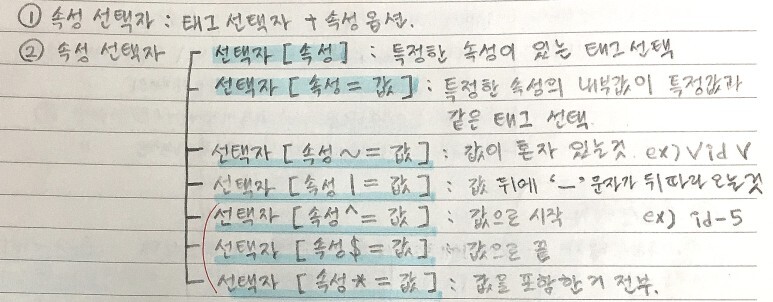 ① 속성 선택자 : 태그 선택자 + 속성 옵션.
② 속성 선택자 선택자 [속성] : 특정한 속성이 있는 태그 선택
선택자 [속성 = 값] : 특정한 속성의 내부값이 특정값과
같은 태그 선택.
선택자 [속성 ~= 값] : 값이 혼자 있는것. ex) ∨id∨
선택자 [속성 |= 값] : 값 뒤에 '-' 문자가 뒤따라 오는것
선택자 [속성^= 값] : 값으로 시작 ex) id-5
선택자 [속성$= 값] : 값으로 끝
선택자 [속성*= 값] : 값을 포함한거 전부.